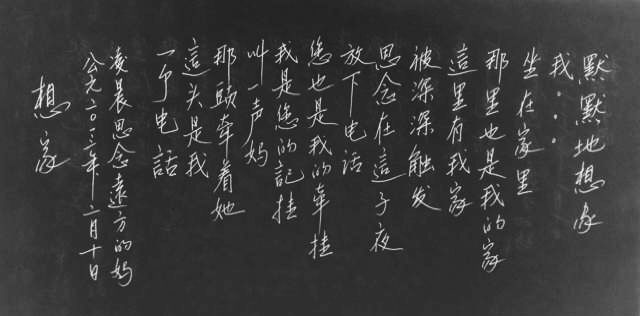 想家
公元二〇一三年二月十日
凌晨思念遠方的妈
一个电話
這头是我
那頭牵着她
叫一声妈
我是您的記挂
您也是我的牵挂
放下电话
思念在這子夜
被深深触发
這里有我家
那里也是我的家
坐在家里
我...
默默地想家